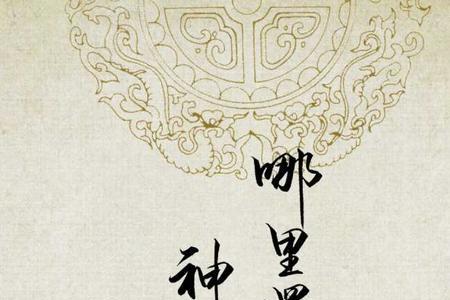 哪里
神